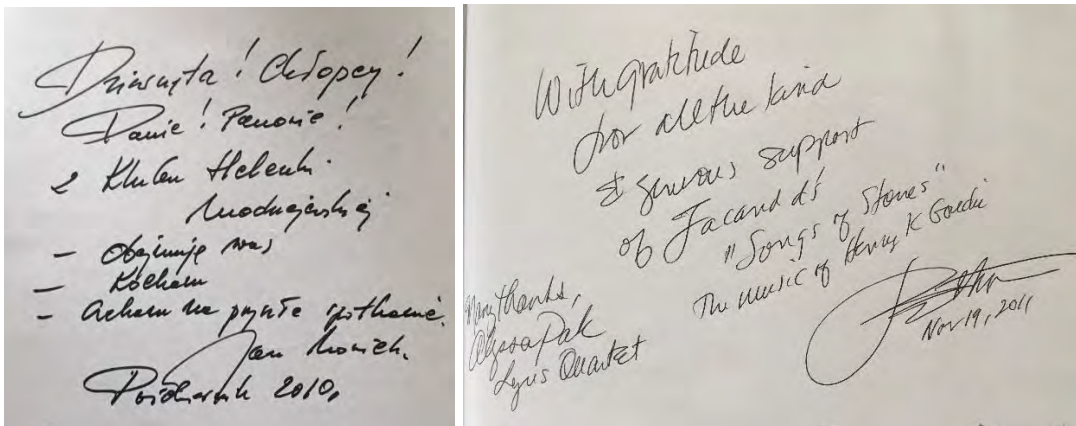 Dziewczęta! Chłopcy!
Panie! Panowie!
z Klubu Helenki
Modrzejewskiej
— obejmuję was
— Kocham
— czekam na przyszłe spotkanie.
Jan
Październik 2010,
With gratitude
for all the kind
& generous support
of Jacaranda's
"Songs of Stones"
The music of Henry K Gorecki
Nov 19, 2011
Many thanks,
Alyssa Park
Lyris Quartet